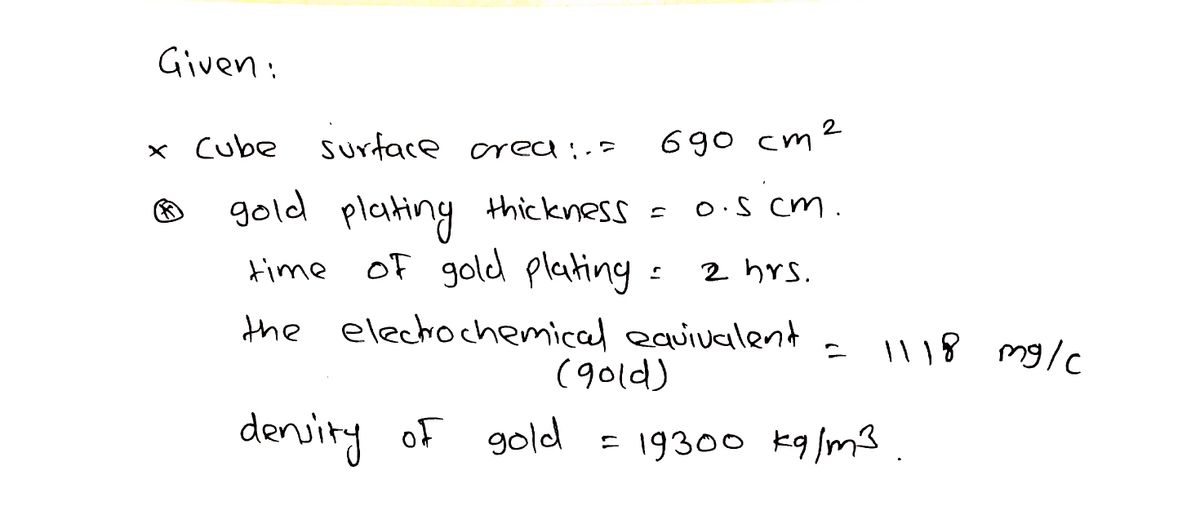 Given:
× Cube surface area :- = 690 cm²
⊛ gold plating thickness = 0.5 cm.
time of gold plating = 2 hrs.
the electrochemical equivalent = 1118 mg/c
(gold)
density of gold = 19300 kg/m³.